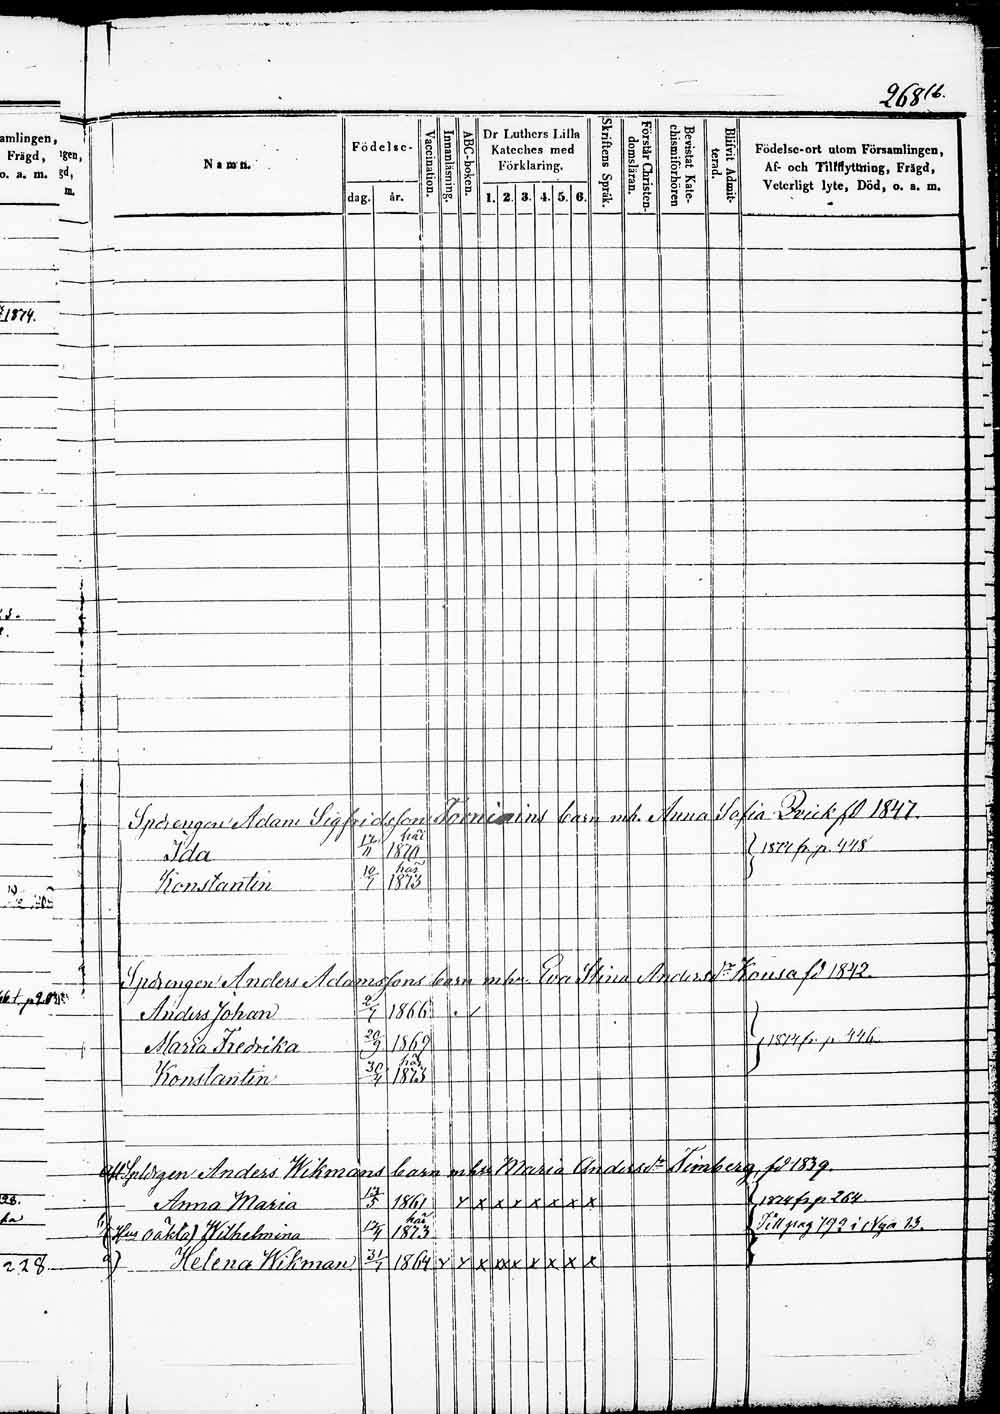 268 16.
amlingen,
Frägd,
o. a. m.
gen,
gd,
m.
Namn.
Födelse-
dag. år.
Vaccination.
Innanläsning.
ABC-boken.
Dr Luthers Lilla
Kateches med
Förklaring.
1. 2. 3. 4. 5. 6.
Skriftens Språk.
Förstår Christen-
domsläran.
Bevistat Kate-
chismiförhören
Blifvit Admit-
terad.
Födelse-ort utom Församlingen,
Af- och Tillflyttning, Frägd,
Veterligt lyte, Död, o. a. m.
1874.
Spdrengen Adam Sigfridsson barn mh. Anna Sofia Qvick fd 1847.
Ida 1870 här 1874 fr. p. 448
Konstantin 10/7 1873 här
Spdrengen Anders Adamssons barn mhu. Eva Stina Andersdr Kousa fd 1842.
Anders Johan 2/7 1866
Maria Fredrika 20/9 1869 1874 fr. p. 446
Konstantin 30/4 1873 här
Anders Wikmans barn mhu Maria Andersdr Timberg, fd 1839.
Anna Maria 17/5 1861 x x x x x x x x 1874 fr p 264
(Hus oäkta) Wilhelmina 1873 här Till pag 192 i Nya 13.
Helena Wikman 31/7 1864 x x x x x x x x x
228